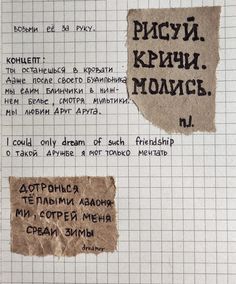 возьми её за руку.
РИСУЙ.
КРИЧИ.
МОЛИСЬ.
n.l.
КОНЦЕПТ:
ТЫ ОСТАНЕШЬСЯ В КРОВАТИ
ДАЖЕ ПОСЛЕ СВОЕГО БУДИЛЬНИКА
МЫ ЕДИМ БЛИНЧИКИ В НИЖ-
НЕМ БЕЛЬЕ, СМОТРЯ МУЛЬТИКИ.
МЫ ЛЮБИМ ДРУГ ДРУГА.
I could only dream of such friendship
О ТАКОЙ ДРУЖБЕ Я МОГ ТОЛЬКО МЕЧТАТЬ
ДОТРОНЬСЯ
ТЁПЛЫМИ ЛАДОНЯ-
МИ, СОГРЕЙ МЕНЯ
СРЕДИ ЗИМЫ